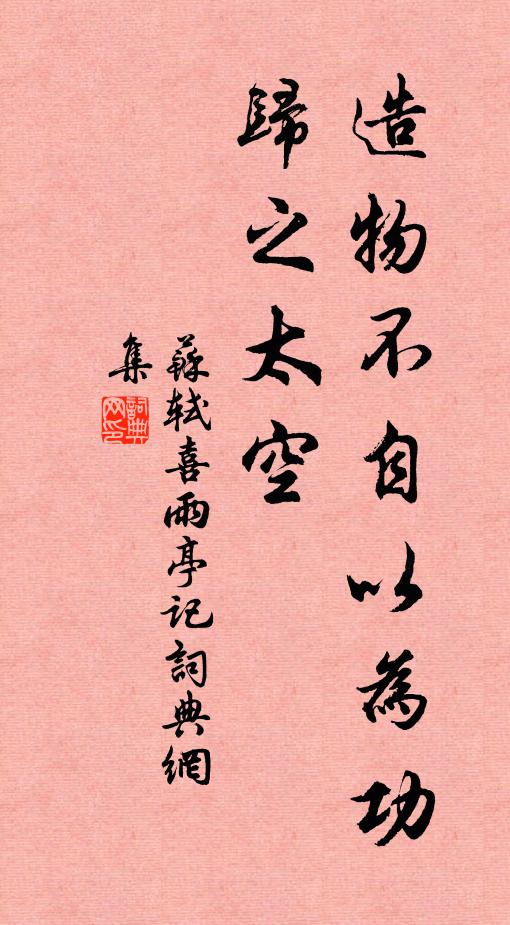 造物不自以為功
歸之太空
蘇軾喜雨亭記詞典網
集
詞典
网印